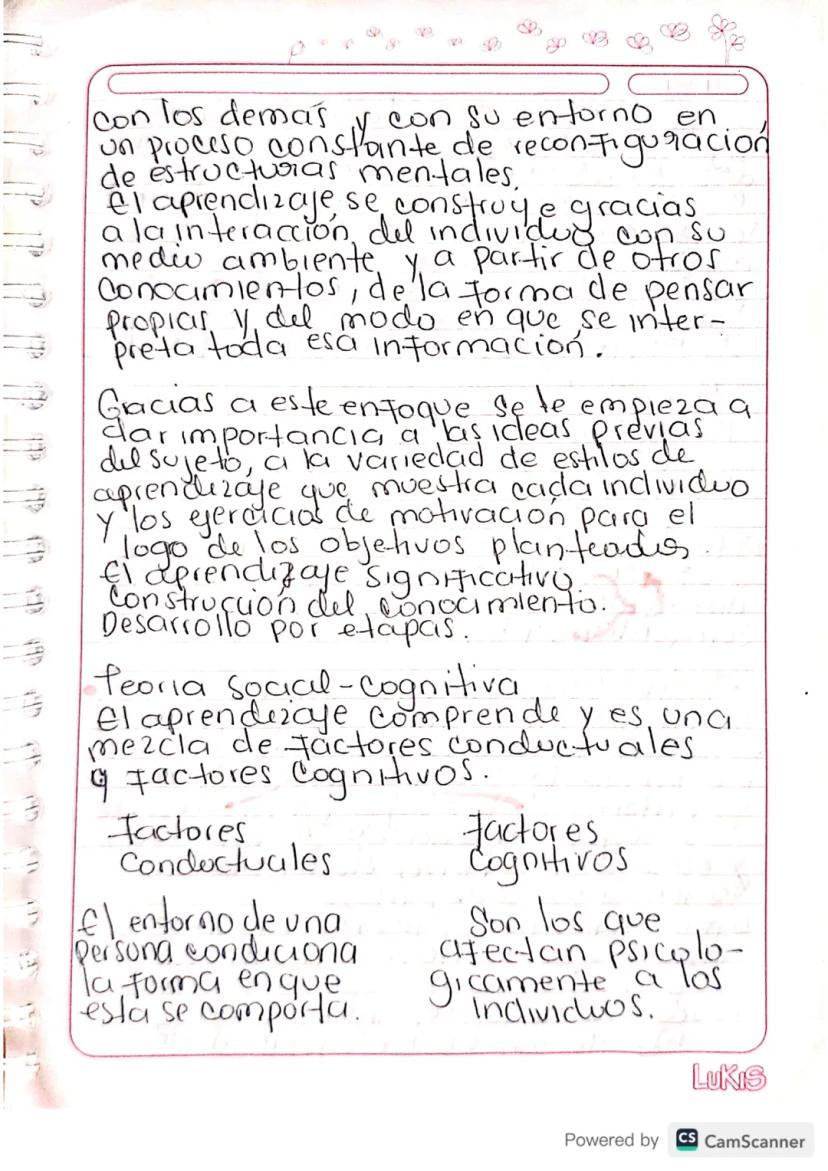 con los demás y con su entorno en
un proceso constante de reconfiguración
de estructuras mentales.
El aprendizaje se construye gracias
a la interacción del individuo con su
medio ambiente y a partir de otros
conocimientos, de la forma de pensar
propias y del modo en que se inter-
preta toda esa información.
Gracias a este enfoque se le empieza a
dar importancia a las ideas previas
del sujeto, a la variedad de estilos de
aprendizaje que muestra cada individuo
y los ejercicios de motivación para el
logo de los objetivos planteados.
El aprendizaje significativo.
Construcción del conocimiento.
Desarrollo por etapas.
Teoria social-cognitiva
El aprendizaje comprende y es una
mezcla de factores conductuales
y factores cognitivos.
Factores
Conductuales
El entorno de una
persona condiciona
la forma en que
esta se comporta.
Factores
Cognitivos
Son los que
afectan psicolo-
gicamente a los
individuos.
LUKIS
Powered by CS CamScanner